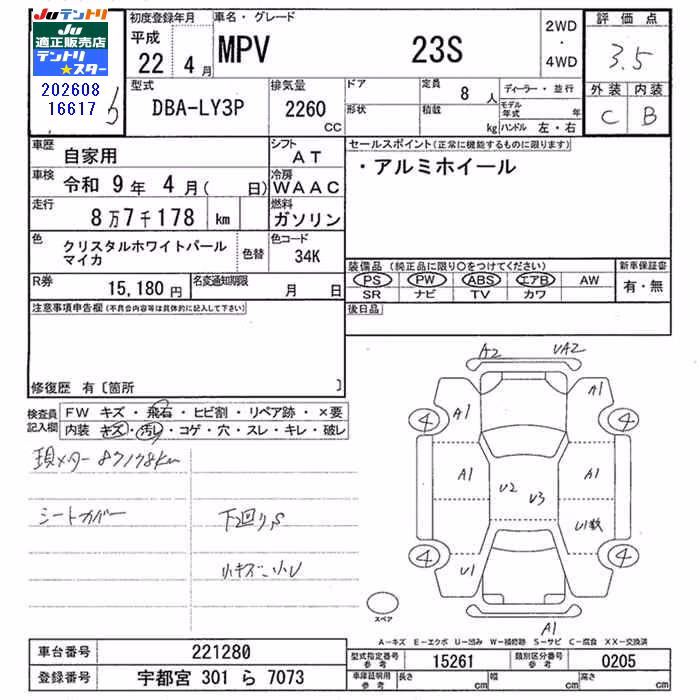 Juテントリ
Ju
適正販売店
テントリ
スター
202608
16617
初度登録年月
平成
22 4月
車名・グレード
MPV 23S
2WD
・
4WD
評価点
3.5
外装 内装
C B
型式
DBA-LY3P
排気量
2260
CC
ドア
形状
定員
8人
積載
kg
ディーラー・並行
モデル年式 年
ハンドル 左・右
車歴
自家用
シフト
AT
車検
令和 9年 4月( 日)
冷房
WAAC
走行
8万7千178 km
燃料
ガソリン
色
クリスタルホワイトパール
マイカ
色替
色コード
34K
R券
15,180円
名変通知期限
月 日
セールスポイント(正常に機能するものに限ります)
・アルミホイール
装備品(純正品に限り○をつけてください)
PS PW ABS エアB AW
SR ナビ TV カワ
新車保証書
有・無
注意事項申告欄(不具合内容等は具体的に記入して下さい)
後日品
修復歴 有〔箇所 〕
検査員
記入欄
FW キズ・飛石・ヒビ割・リペア跡・×要
内装 キズ・汚レ・コゲ・穴・スレ・キレ・破レ
現メーター87178km
シートカバー
下廻りS
小キズ、小U
A2 UA2
A1 A1
4 4
A1 U2 U3 A1
U1数
4 4
U1
A1
スペア
A-キズ E-エクボ U-凹み W-補修跡 S-サビ C-腐食 XX-交換済
車台番号
221280
型式指定番号
参考
15261
類別区分番号
参考
0205
登録番号
宇都宮 301 ら 7073
車庫証明用
参考
長さ cm
幅 cm
高さ cm